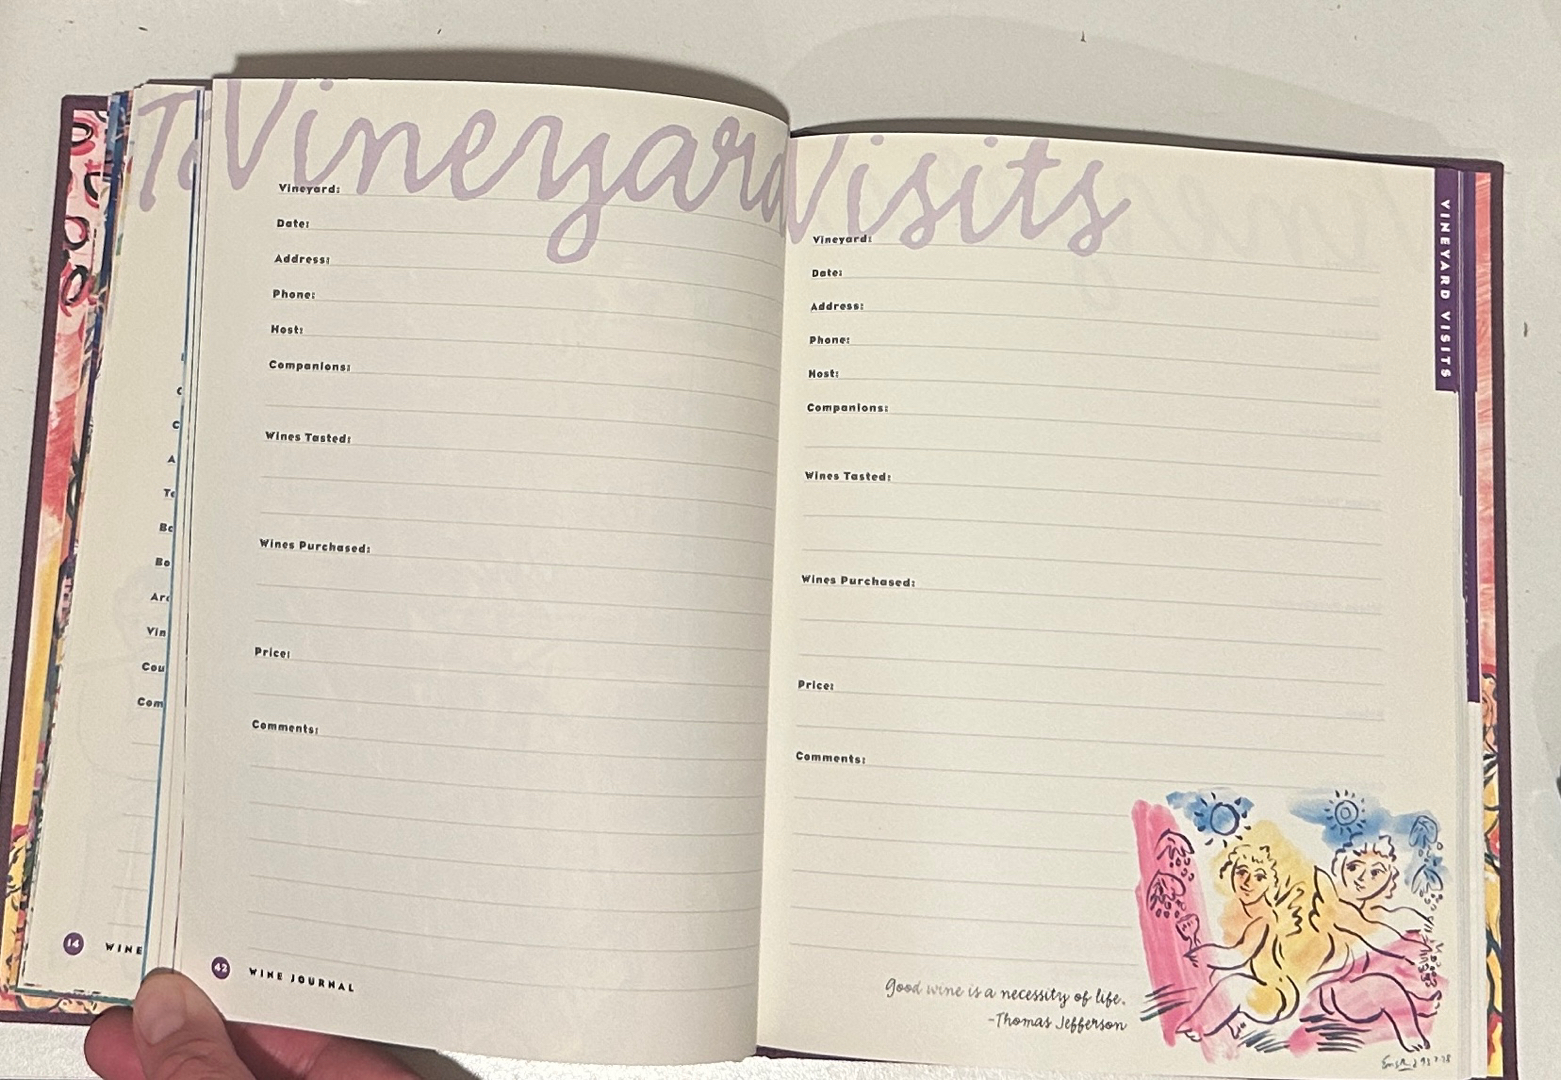 Vineyard Visits
Vineyard:
Date:
Address:
Phone:
Host:
Companions:
Wines Tasted:
Wines Purchased:
Price:
Comments:
42 WINE JOURNAL
Vineyard:
Date:
Address:
Phone:
Host:
Companions:
Wines Tasted:
Wines Purchased:
Price:
Comments:
Good wine is a necessity of life.
-Thomas Jefferson
VINEYARD VISITS
14 WINE